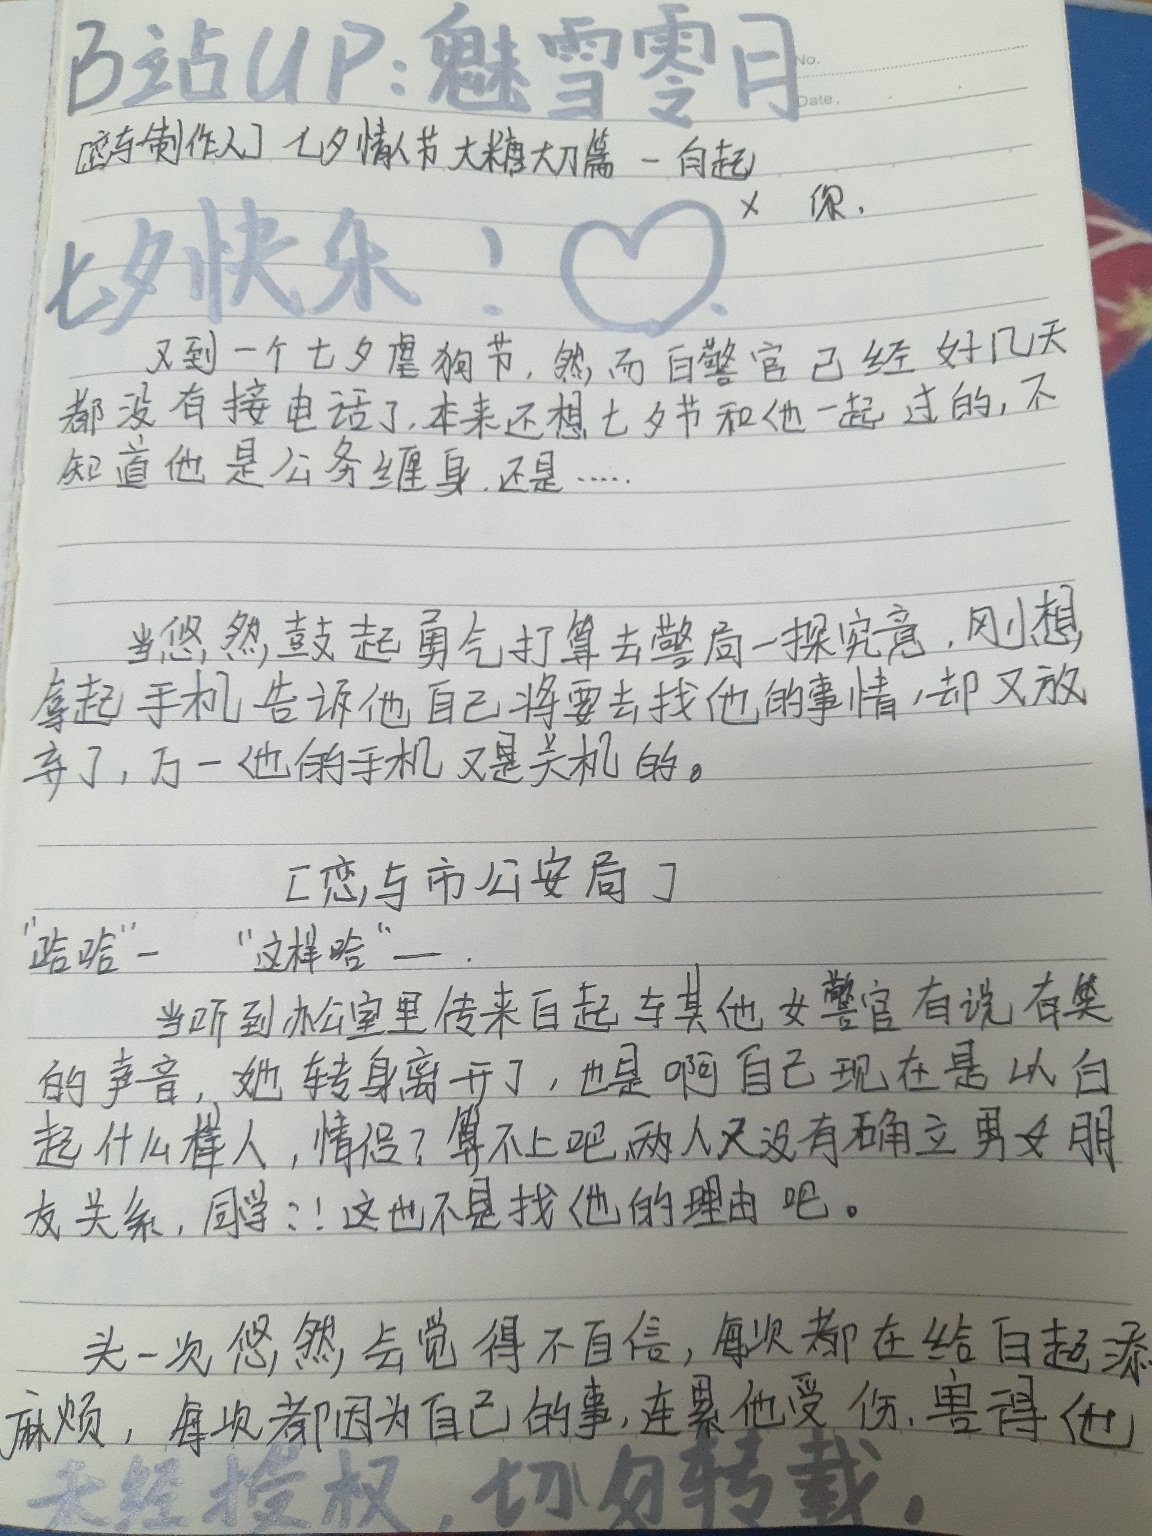 B站UP:魅雪零月
No.
Date.
[恋与制作人]七夕情人节大糖大刀篇-白起
x 你.
七夕快乐!♡
又到一个七夕虐狗节,然而白警官已经好几天
都没有接电话了,本来还想七夕节和他一起过的,不
知道他是公务缠身.还是……
当悠然鼓起勇气打算去警局一探究竟,刚想
拿起手机告诉他自己将要去找他的事情,却又放
弃了,万一他的手机又是关机的。
[恋与市公安局]
"哈哈"- "这样哈"—.
当听到办公室里传来白起与其他女警官有说有笑
的声音,她转身离开了,也是啊自己现在是以白
起什么样人,情侣?算不上吧,两人又没有确立男女朋
友关系,同学?!这也不是找他的理由吧。
头一次悠然会觉得不自信,每次都在给白起添
麻烦,每次都因为自己的事,连累他受伤.害得他
未经授权,切勿转载.